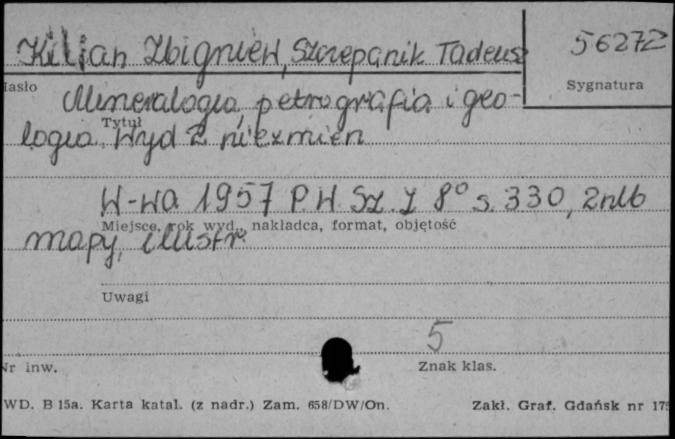 Kilian Zbigniew, Szczepanik Tadeusz
56272
Hasło
Sygnatura
Mineralogia, petrografia i geo-
Tytuł
logia. Wyd 2 niezmien
W-wa 1957 P.W. Sz. Z 8° s. 330, 2nlb
Miejsce, rok wyd., nakładca, format, objętość
mapy, ilustr.
Uwagi
5
Nr inw.
Znak klas.
WD. B 15a. Karta katal. (z nadr.) Zam. 658/DW/On.
Zakł. Graf. Gdańsk nr 175